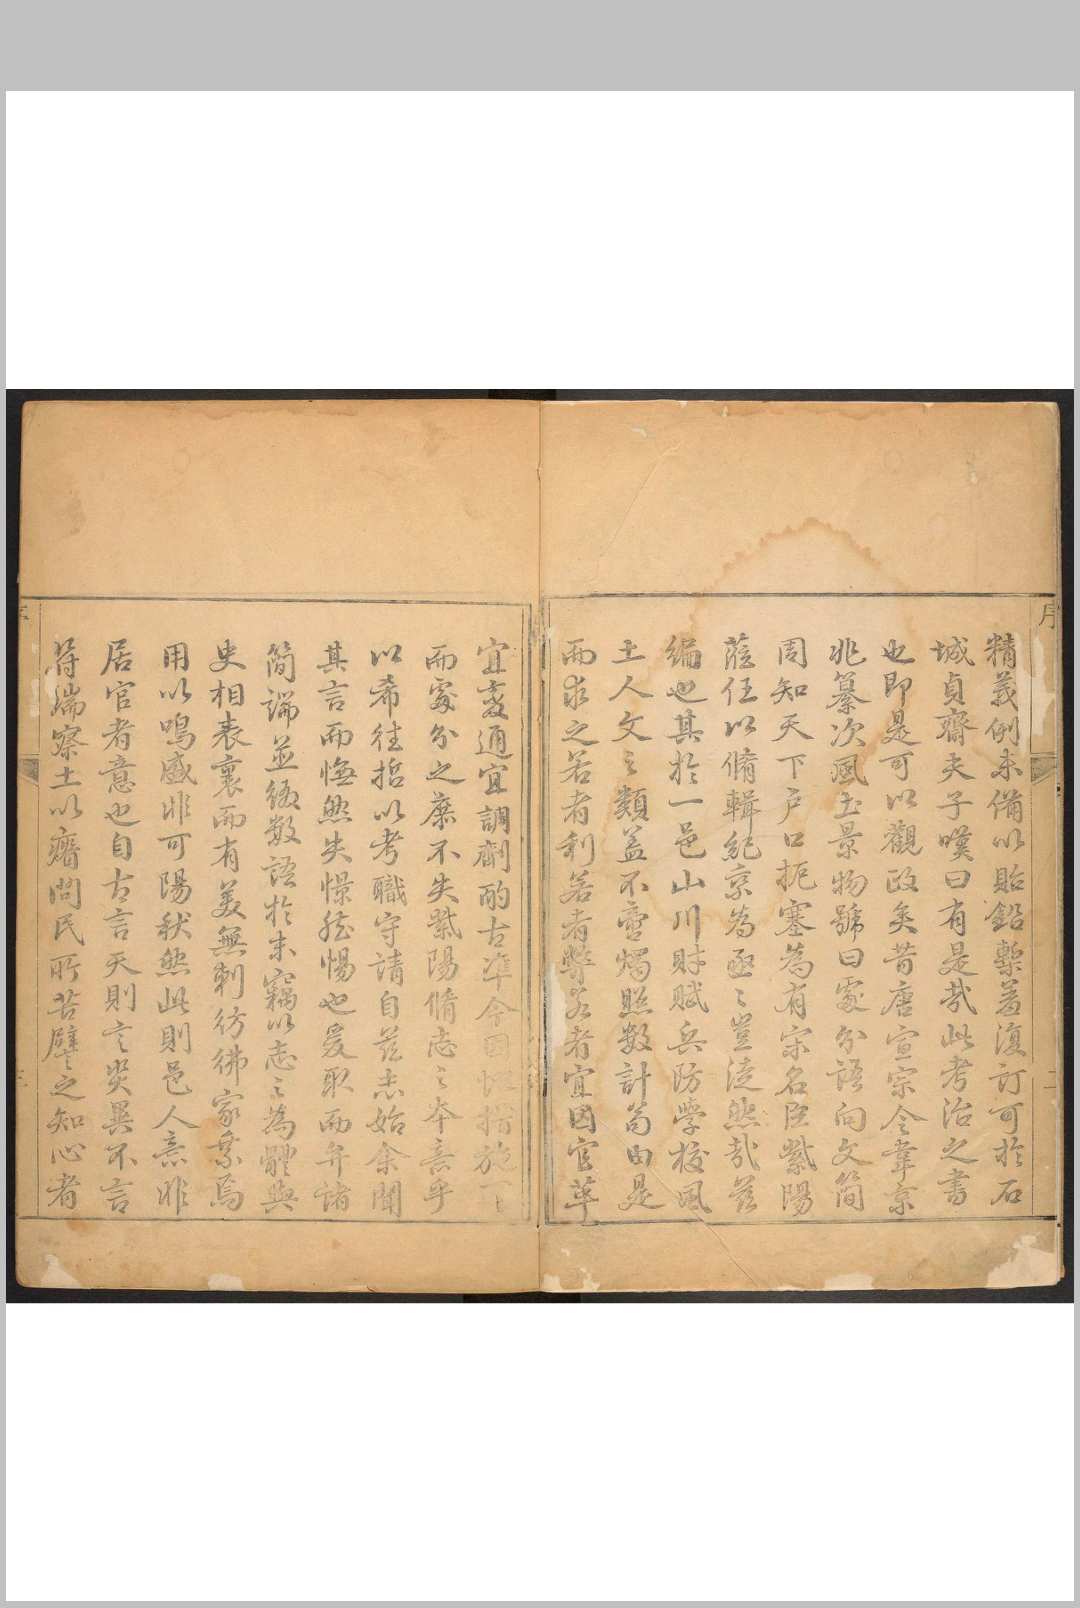 序
精義例未備以貽鉛槧羞復訂可於石
城貞齋夫子嘆曰有是哉此考治之書
也即是可以觀政矣昔唐宣宗令韋京
兆纂次風土景物號曰處分語向文簡
周知天下戶口扼塞為有宗名臣紫陽
蒞任以脩輯紀京為亟〻豈徒然哉茲
編也其於一邑山川財賦兵防學校風
土人文之類蓋不啻燭照數計苟由是
而求之若者利若者弊若者宜因宜革
宜變通宜調劑酌古準今因
而處分之庶不失紫陽脩志之本意乎
以希往哲以考職守請自茲志始余聞
其言而憮然失憬然惕也爰取而弁諸
簡端並綴數語於末竊以志之為體與
史相表裏而有美無刺彷彿家乘焉
用以鳴盛非可陽秋然此則邑人意非
居官者意也自古言天則言災異不言
符瑞察土以瘠問民所苦譬之知心者